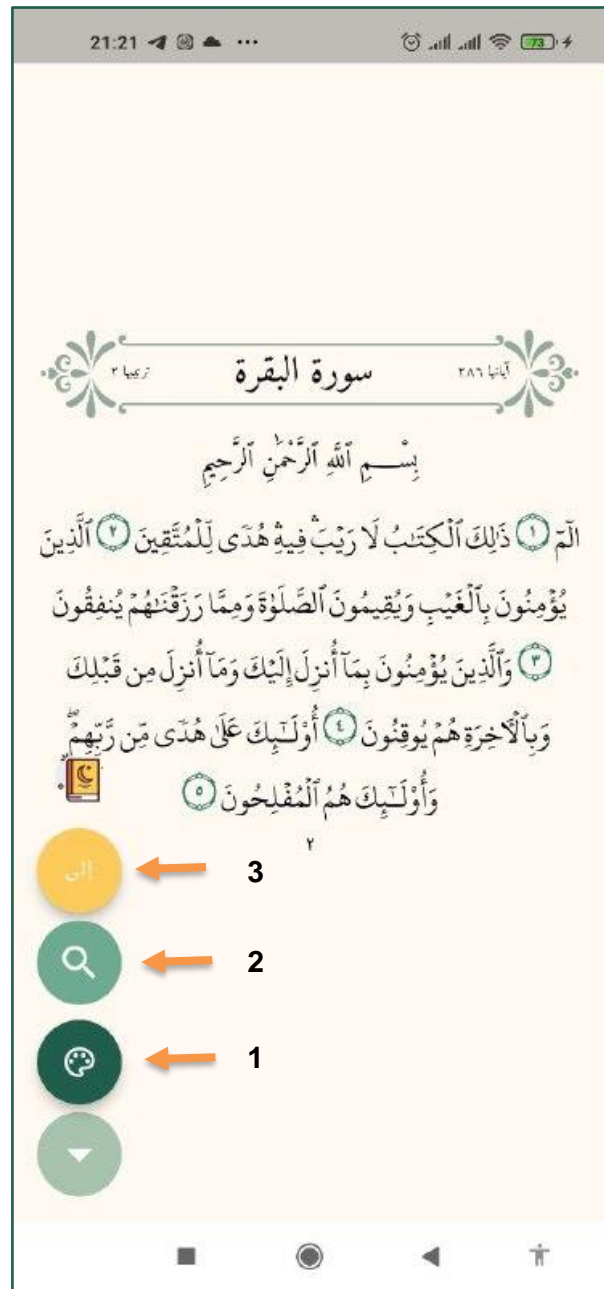 21:21
73
آياتها ٢٨٦ سورة البقرة ترتيبها ٢
بِسْمِ ٱللَّهِ ٱلرَّحْمَٰنِ ٱلرَّحِيمِ
الٓمٓ ١ ذَٰلِكَ ٱلْكِتَٰبُ لَا رَيْبَ ۛ فِيهِ ۛ هُدًى لِّلْمُتَّقِينَ ٢ ٱلَّذِينَ
يُؤْمِنُونَ بِٱلْغَيْبِ وَيُقِيمُونَ ٱلصَّلَوٰةَ وَمِمَّا رَزَقْنَٰهُمْ يُنفِقُونَ
٣ وَٱلَّذِينَ يُؤْمِنُونَ بِمَآ أُنزِلَ إِلَيْكَ وَمَآ أُنزِلَ مِن قَبْلِكَ
وَبِٱلْءَاخِرَةِ هُمْ يُوقِنُونَ ٤ أُو۟لَٰٓئِكَ عَلَىٰ هُدًى مِّن رَّبِّهِمْ ۖ
وَأُو۟لَٰٓئِكَ هُمُ ٱلْمُفْلِحُونَ ٥
٢
إلى
3
2
1